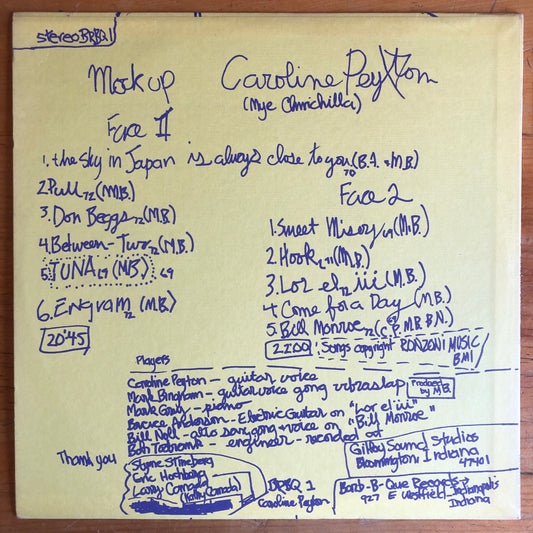 stereo BRBQ 1
Mock up
Caroline Peyton
(Mye Chinchilla)
Face II
1. the sky in Japan is always close to you 70 (B.A. & M.B.)
2. Pull 72 (M.B.)
3. Don Beggs 72 (M.B.)
4. Between-Two 72 (M.B.)
5. TUNA 69 (MB) 69
6. Engram 72 (M.B.)
20'45
Face 2
1. Sweet Misery 69 (M.B.)
2. Hook 71 (M.B.)
3. Lor el iii 72 (M.B.)
4 Come for a Day (M.B.)
5. Bill Monroe 72 (C.P. M.B. B.N.)
Songs copyright RONZONI MUSIC
BMI
Players
Caroline Peyton - guitar voice
Mark Bingham - guitar voice gong vibraslap
Produced by M.B.
Mark Gray - piano
Bruce Anderson - Electric Guitar on "Lor el iii"
Bill Noll - alto sax, gong + voice on "Bill Monroe"
Bob - engineer - recorded at
Gilfoy Sound Studios
Bloomington, Indiana
47401
Thank you
Eric Hochberg
Larry Canada
(Kathy Canada)
BRBQ 1
Caroline Peyton
Barb-B-Que Records
927 E Westfield Indianapolis
Indiana